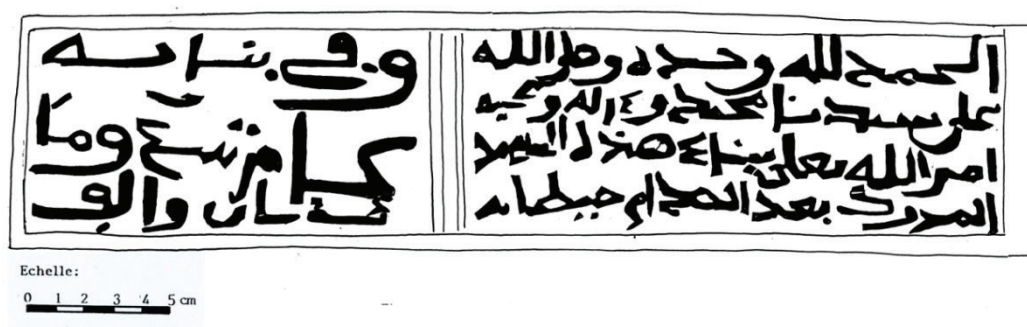 الحمد لله وحده وصلى الله
على سيدنا محمد وءاله وصحبه
امر الله تعلى ببناء هذا المسيد
المبروك بعد انهدام حيطانه
وفي بنايه
تسع وما
والف
Echelle:
0 1 2 3 4 5 cm